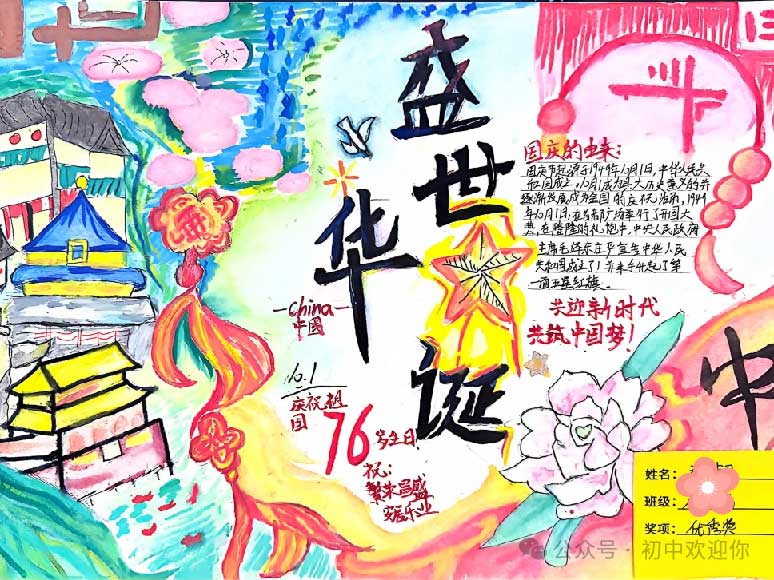 盛世
华诞
China
中國
10.1
庆祝祖
国
76岁生日
祝:
繁荣昌盛
安居乐业
国庆的由来:
国庆节起源于1949年10月1日,中华人民共
和国成立,
年10月1日,在首都广场举行了开国大
典,在隆隆的礼炮声中,中央人民政府
主席毛泽东庄严宣告中华人民
共和国成立了!并亲手升起了第
一面五星红旗。
共迎新时代
共筑中国梦!
中
姓名:
班级:
奖项: 优秀奖
公众号 · 初中欢迎你